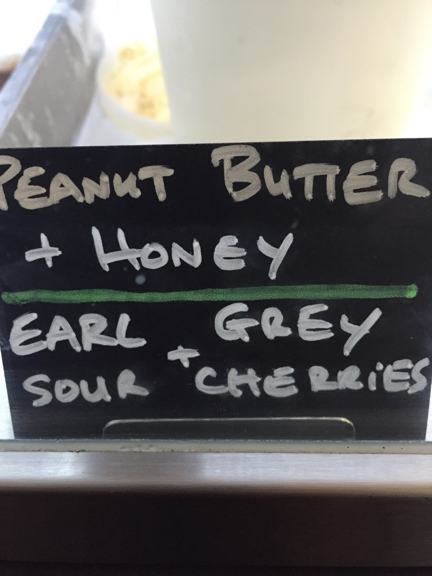 PEANUT BUTTER
+ HONEY
EARL GREY
+
SOUR CHERRIES